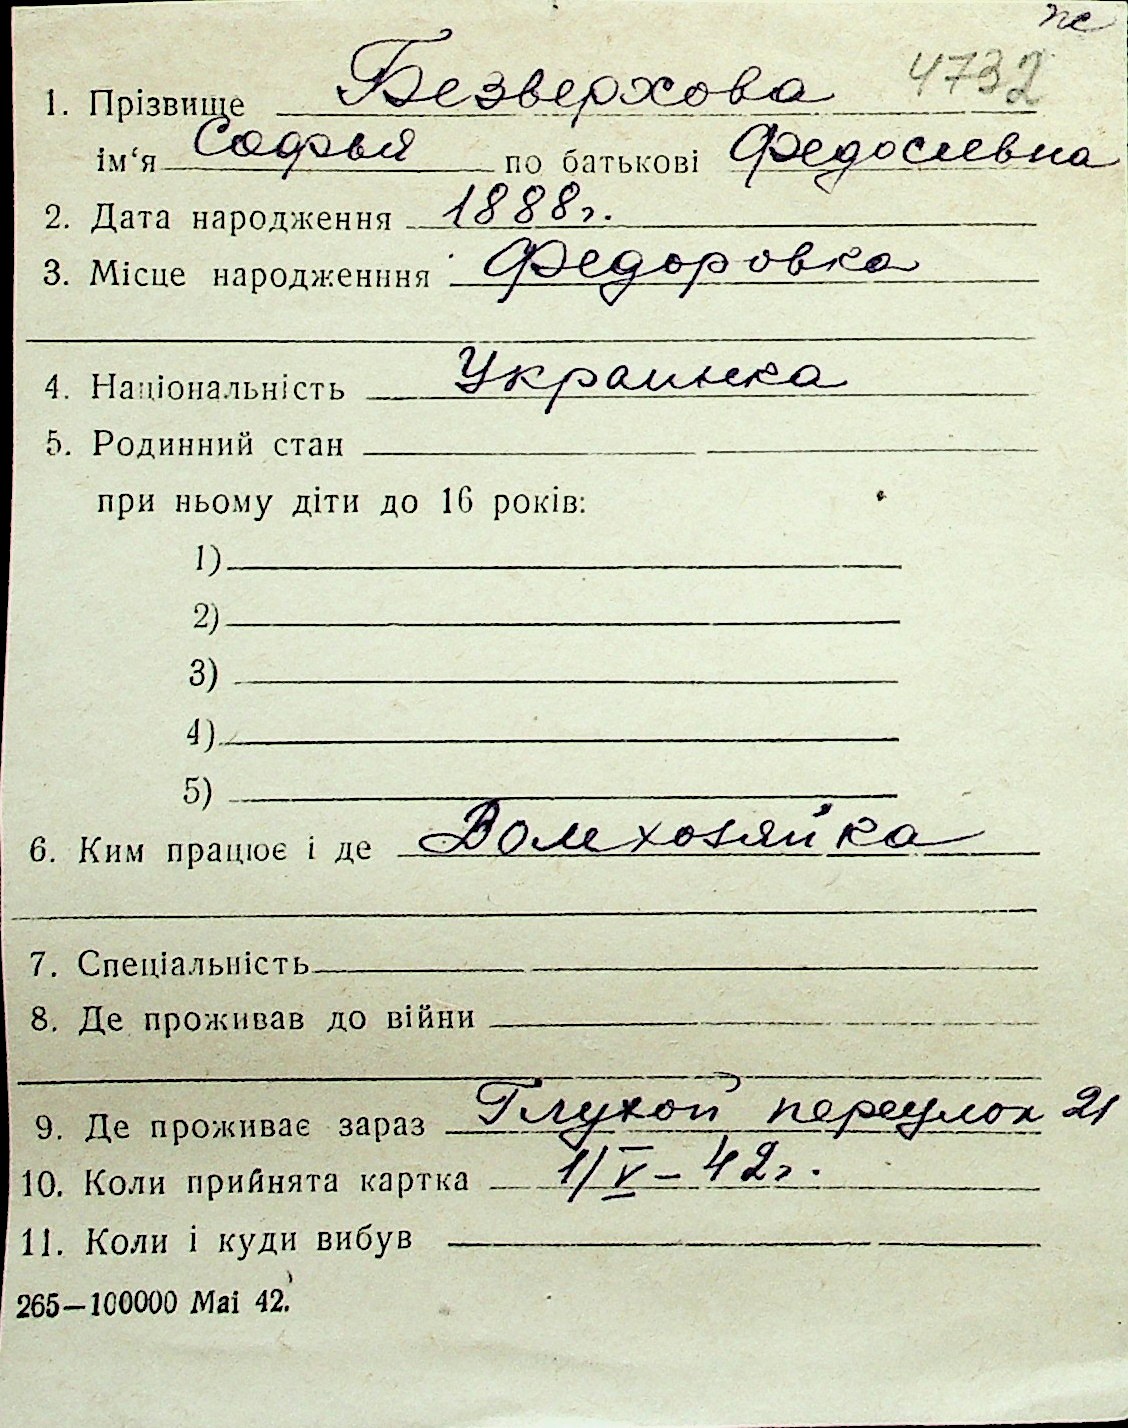 пс
4732
1. Прізвище Безверхова
ім‘я Софья по батькові Федосиевна
2. Дата народження 1888г.
3. Місце народженння Федоровка
4. Національність Украинка
5. Родинний стан
при ньому діти до 16 років:
1)
2)
3)
4)
5)
6. Ким працює і де Домхозяйка
7. Спеціальність
8. Де проживав до війни
9. Де проживає зараз Глухой переулок 21
10. Коли прийнята картка 1/V – 42г.
11. Коли і куди вибув
265—100000 Mai 42.